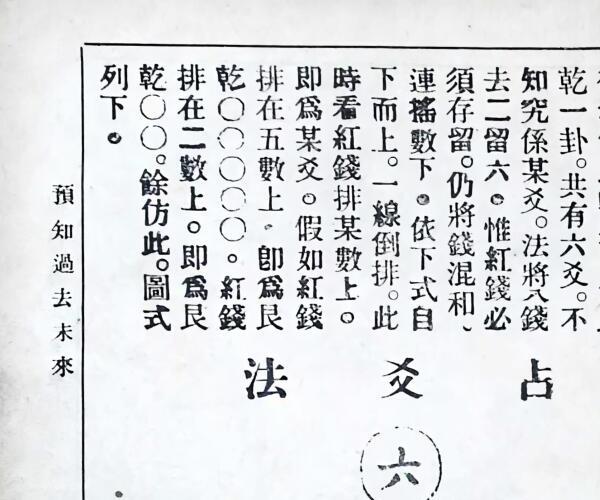 乾一卦。共有六爻。不
知究係某爻。法將八錢
去二留六。惟紅錢必
須存留。仍將錢混和、
連搖數下。依下式自
下而上。一線倒排。此
時看紅錢排某數上。
即爲某爻。假如紅錢
排在五數上。卽爲艮
乾〇〇〇〇〇。紅錢
排在二數上。即爲艮
乾〇〇。餘仿此。圖式
列下。
占爻法
六
預知過去未來